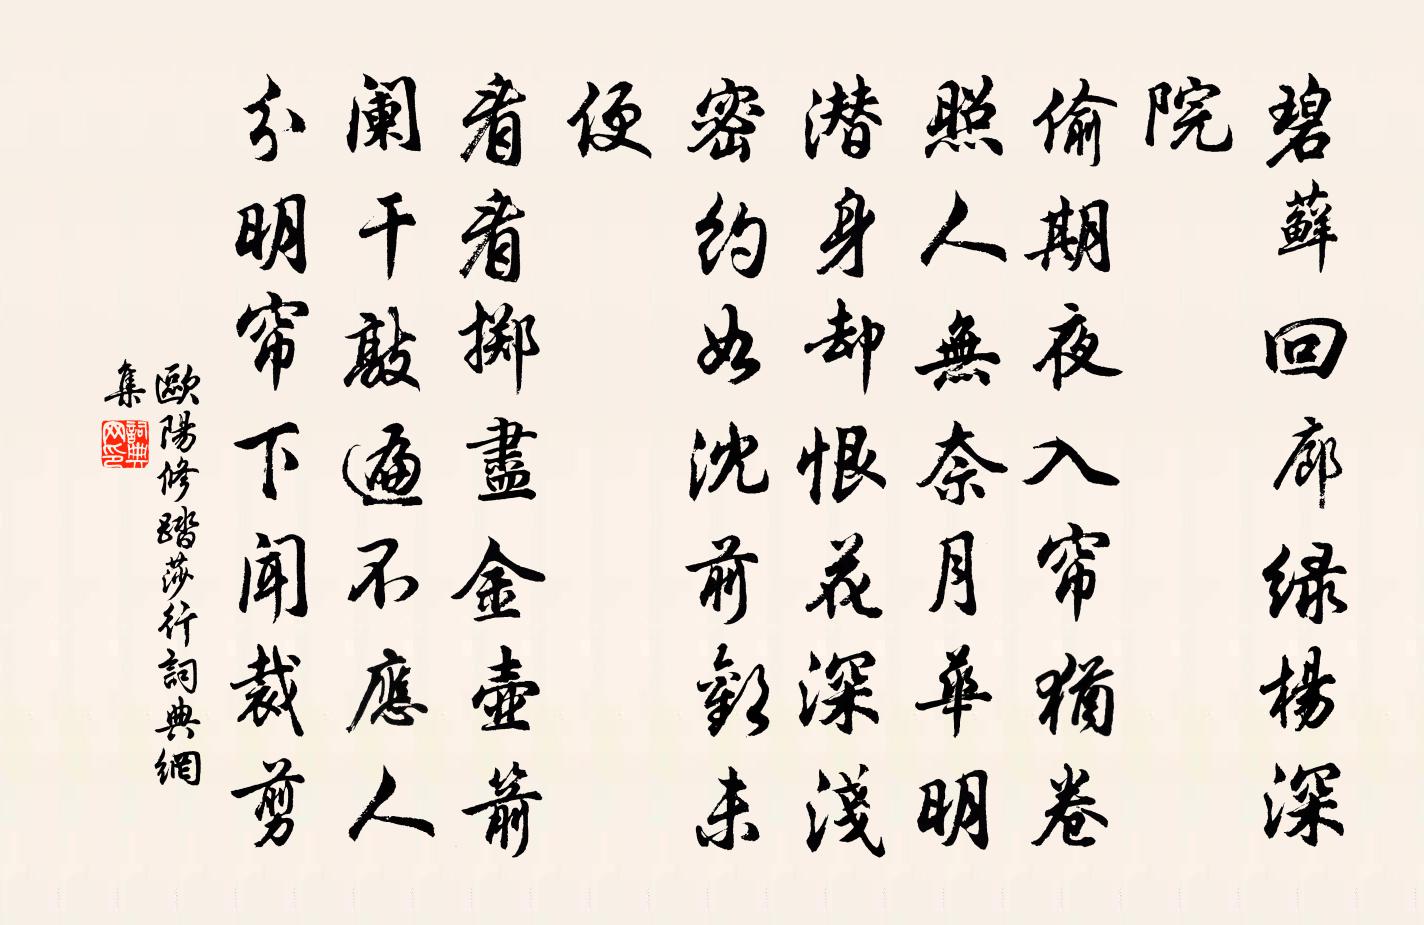 碧蘚回廊绿楊深
院
偷期夜入帘猶卷
照人無奈月華明
潜身却恨花深淺
密約如沈前歡未
便
看看擲盡金壺箭
阑干敲遍不應人
分明帘下闻裁剪
歐陽修踏莎行詞典網
集
詞典
网印